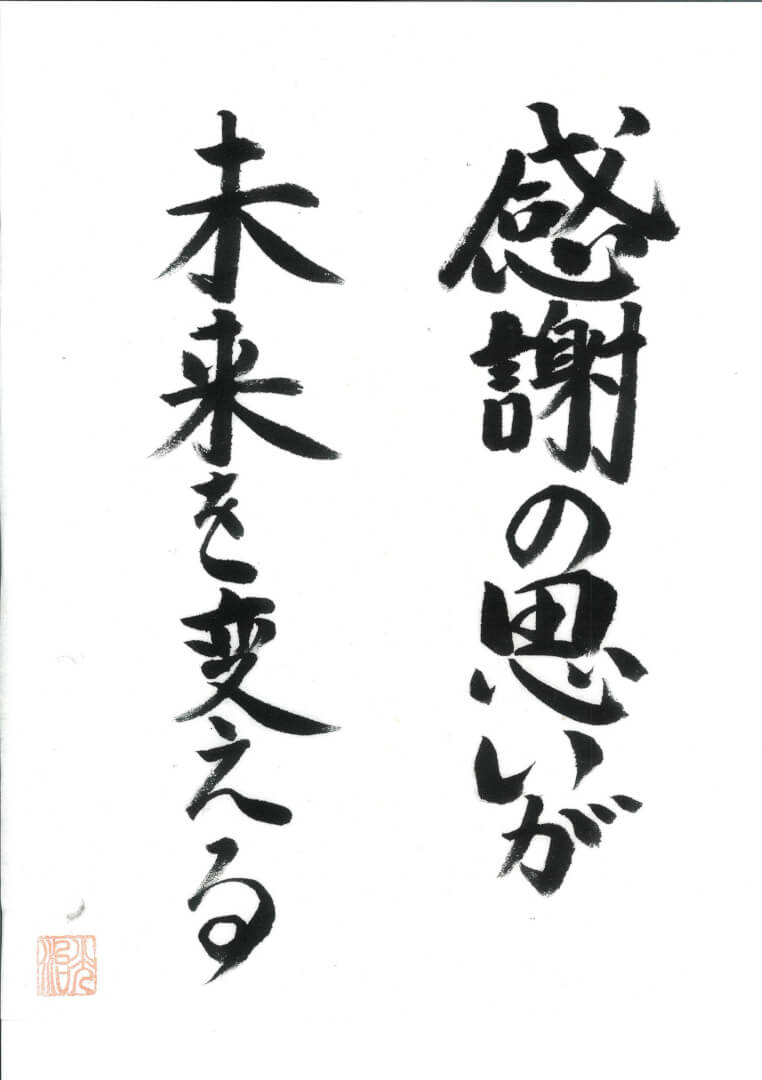 感謝の思いが
未来を変える